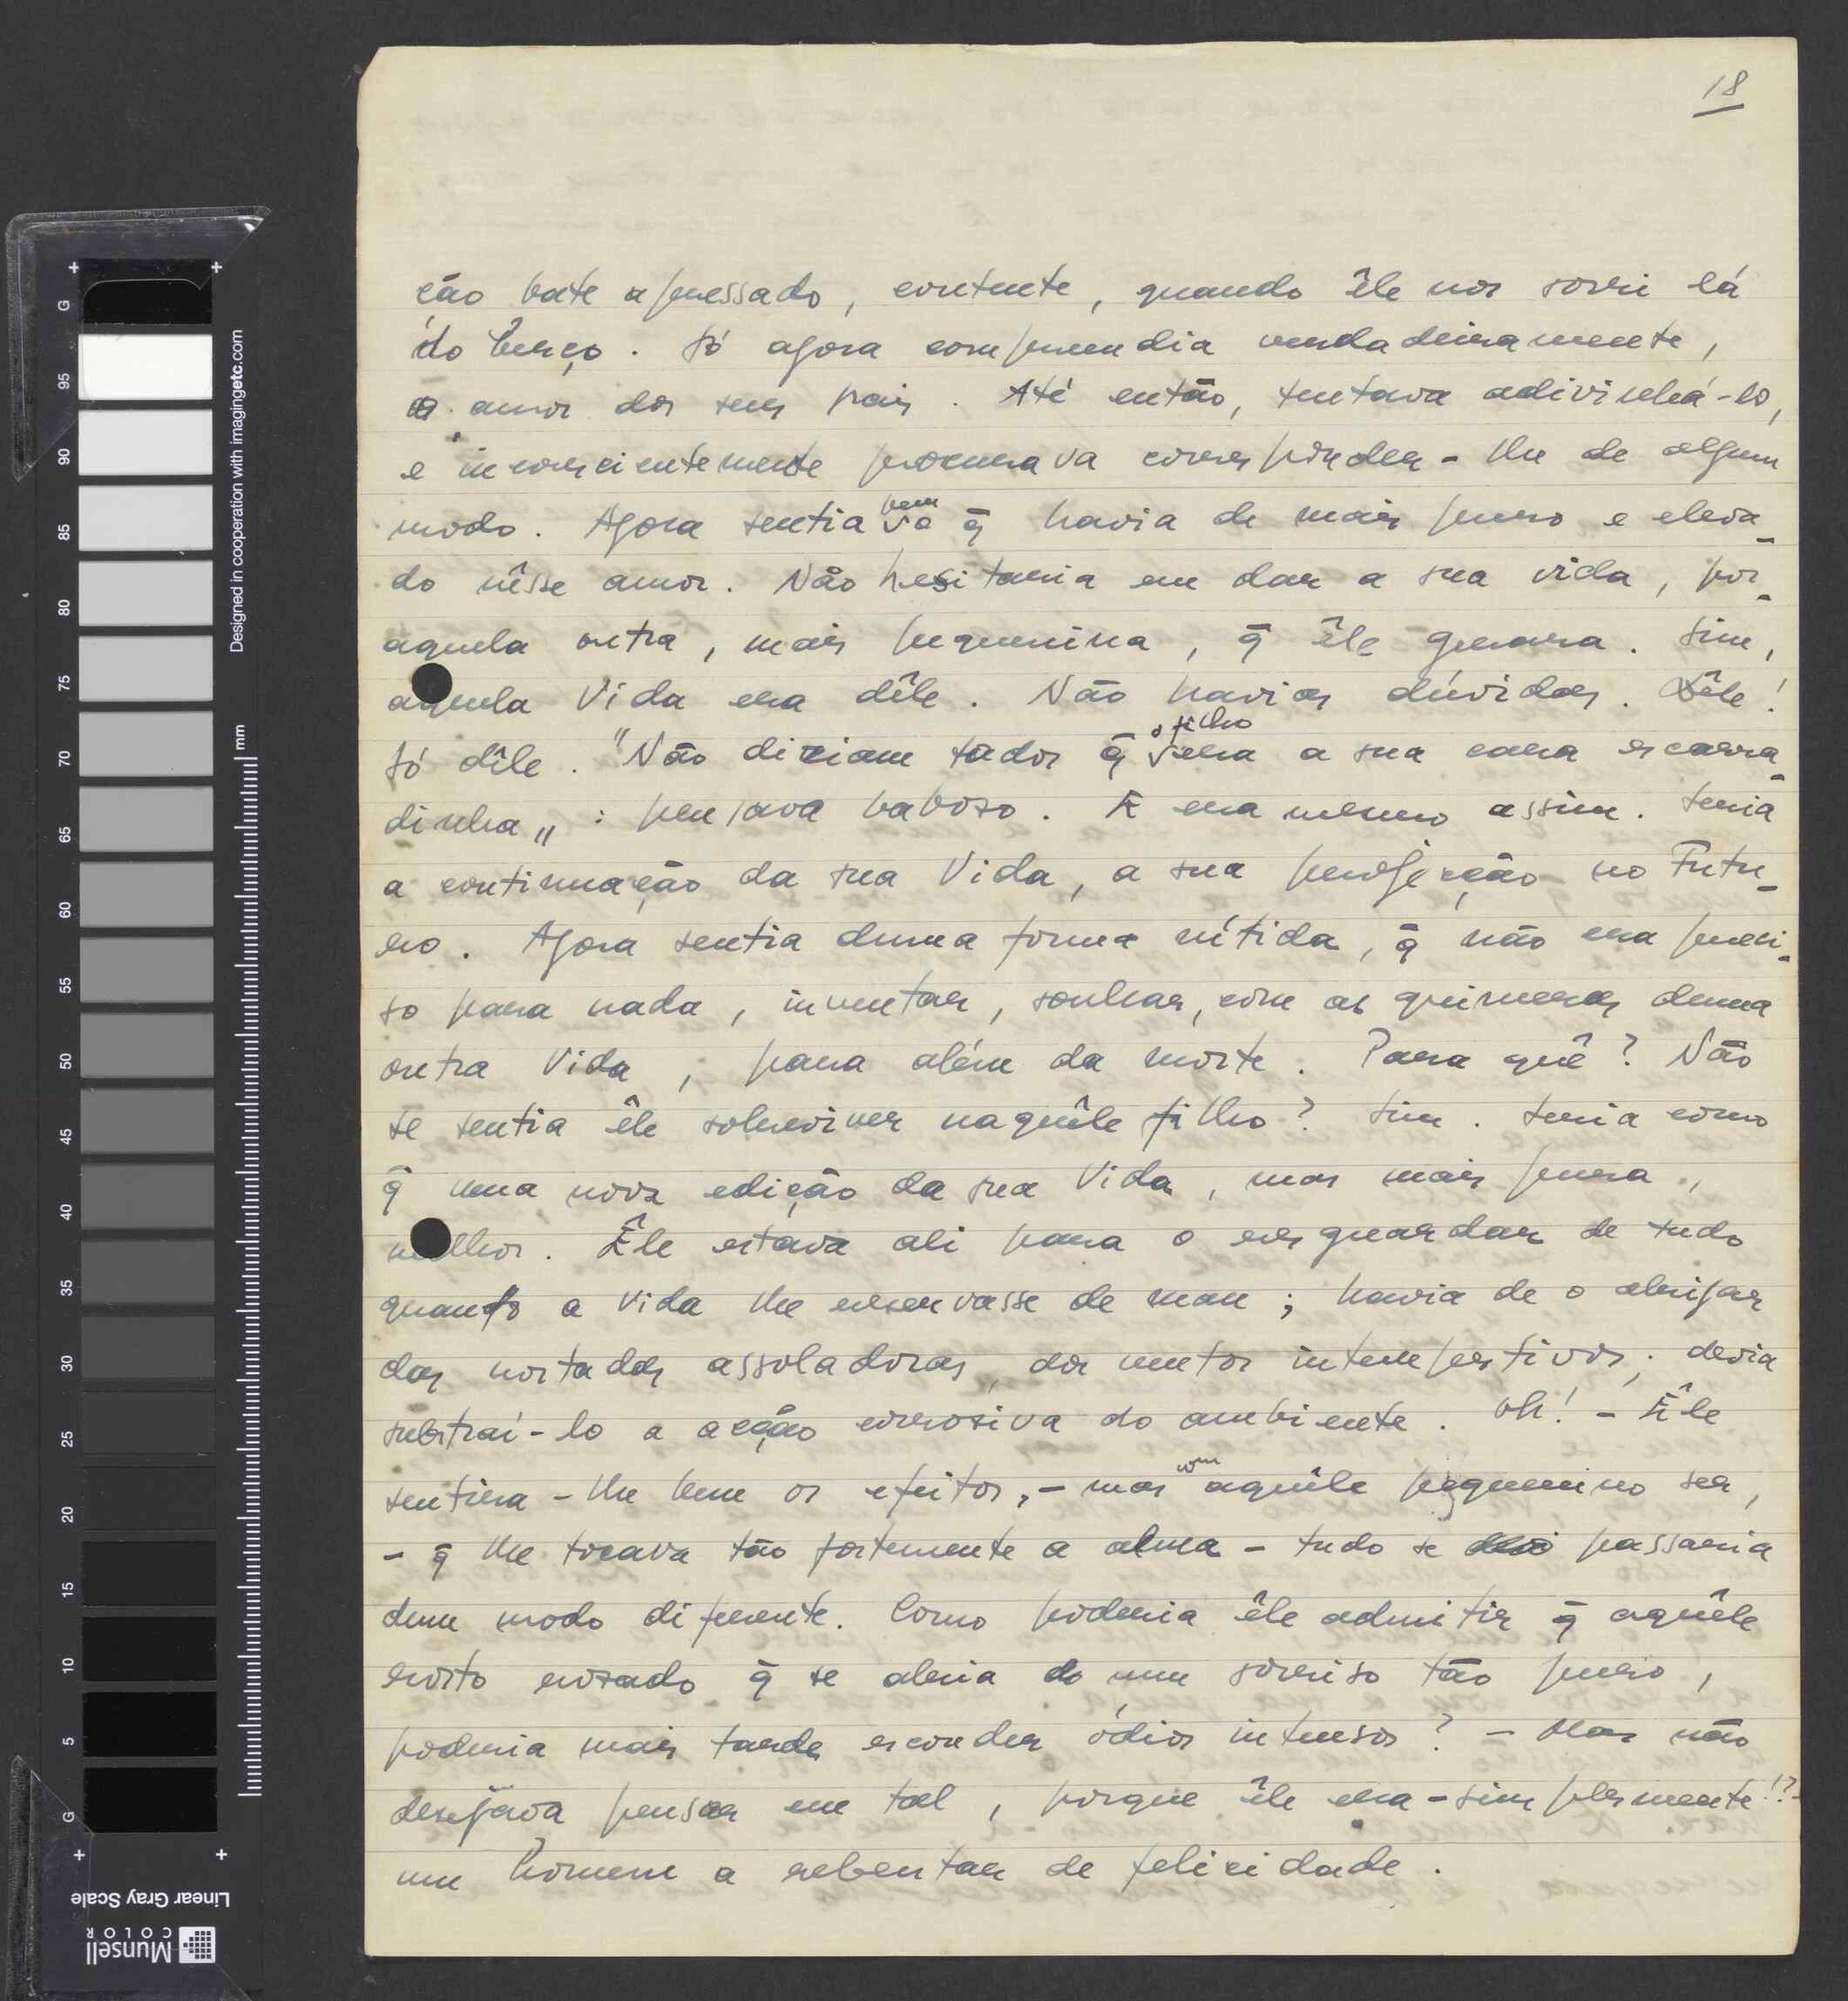 18
ção bate apressado, contente, quando êle nos sorri lá
do berço. Só agora compreendia verdadeiramente,
o amor dos seus pais. Até então, tentava adivinhá-lo,
e inconscientemente procurava corresponder-lhe de algum
modo. Agora sentia bem o q̄ havia de mais puro e eleva-
do nêsse amor. Não hesitaria em dar a sua vida, por
aquela outra, mais pequenina, q̄ êle gerara. Sim,
aquela Vida era dêle. Não havias dúvidas. Dêle!
Só dêle. "Não diziam todos q̄ o filho era a sua cara escarra-
dinha„: pensava baboso. E era mesmo assim. Seria
a continuação da sua Vida, a sua projecção no Futu-
ro. Agora sentia duma forma nítida, q̄ não era preci-
so para nada, inventar, sonhar, com as quimeras duma
outra Vida, para além da morte. Para quê? Não
se sentia êle sobreviver naquêle filho? Sim. Seria como
q̄ uma nova edição da sua Vida, mas mais pura,
melhor. Êle estava ali para o resguardar de tudo
quanto a Vida lhe reservasse de mau; havia de o abrigar
das nortadas assoladoras, dos ventos intempestivos; devia
subtraí-lo a acção corrosiva do ambiente. Oh! - Êle
sentira-lhe bem os efeitos, - mas com aquêle pequenino ser,
- q̄ lhe tocava tão fortemente a alma - tudo se passaria
dum modo diferente. Como poderia êle admitir q̄ aquêle
rosto rosado q̄ se abria do num sorriso tão puro,
poderia mais tarde esconder ódios intensos? - Mas não
desejava pensar em tal, porque êle era - simplesmente!? -
um homem a rebentar de felicidade.
Designed in cooperation with imagingetc.com
mm
G 95 90 85 80 75 70 65 60 55 50 45 40 35 30 25 20 15 10 5 G
Linear Gray Scale
Munsell
COLOR